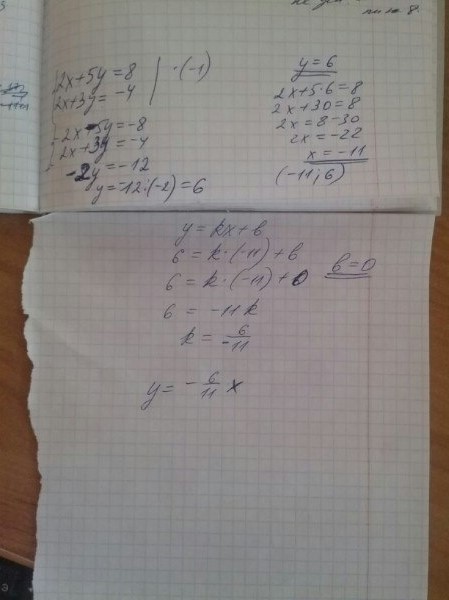 2x+5y=8 | ·(-1)
2x+3y=-4
-2x-5y=-8
2x+3y=-4
-2y=-12
y=-12:(-2)=6
y=6
2x+5·6=8
2x+30=8
2x=8-30
2x=-22
x=-11
(-11;6)
y=kx+b
6=k·(-11)+b
6=k·(-11)+0 b=0
6=-11k
k=6/-11
y=-6/11 x